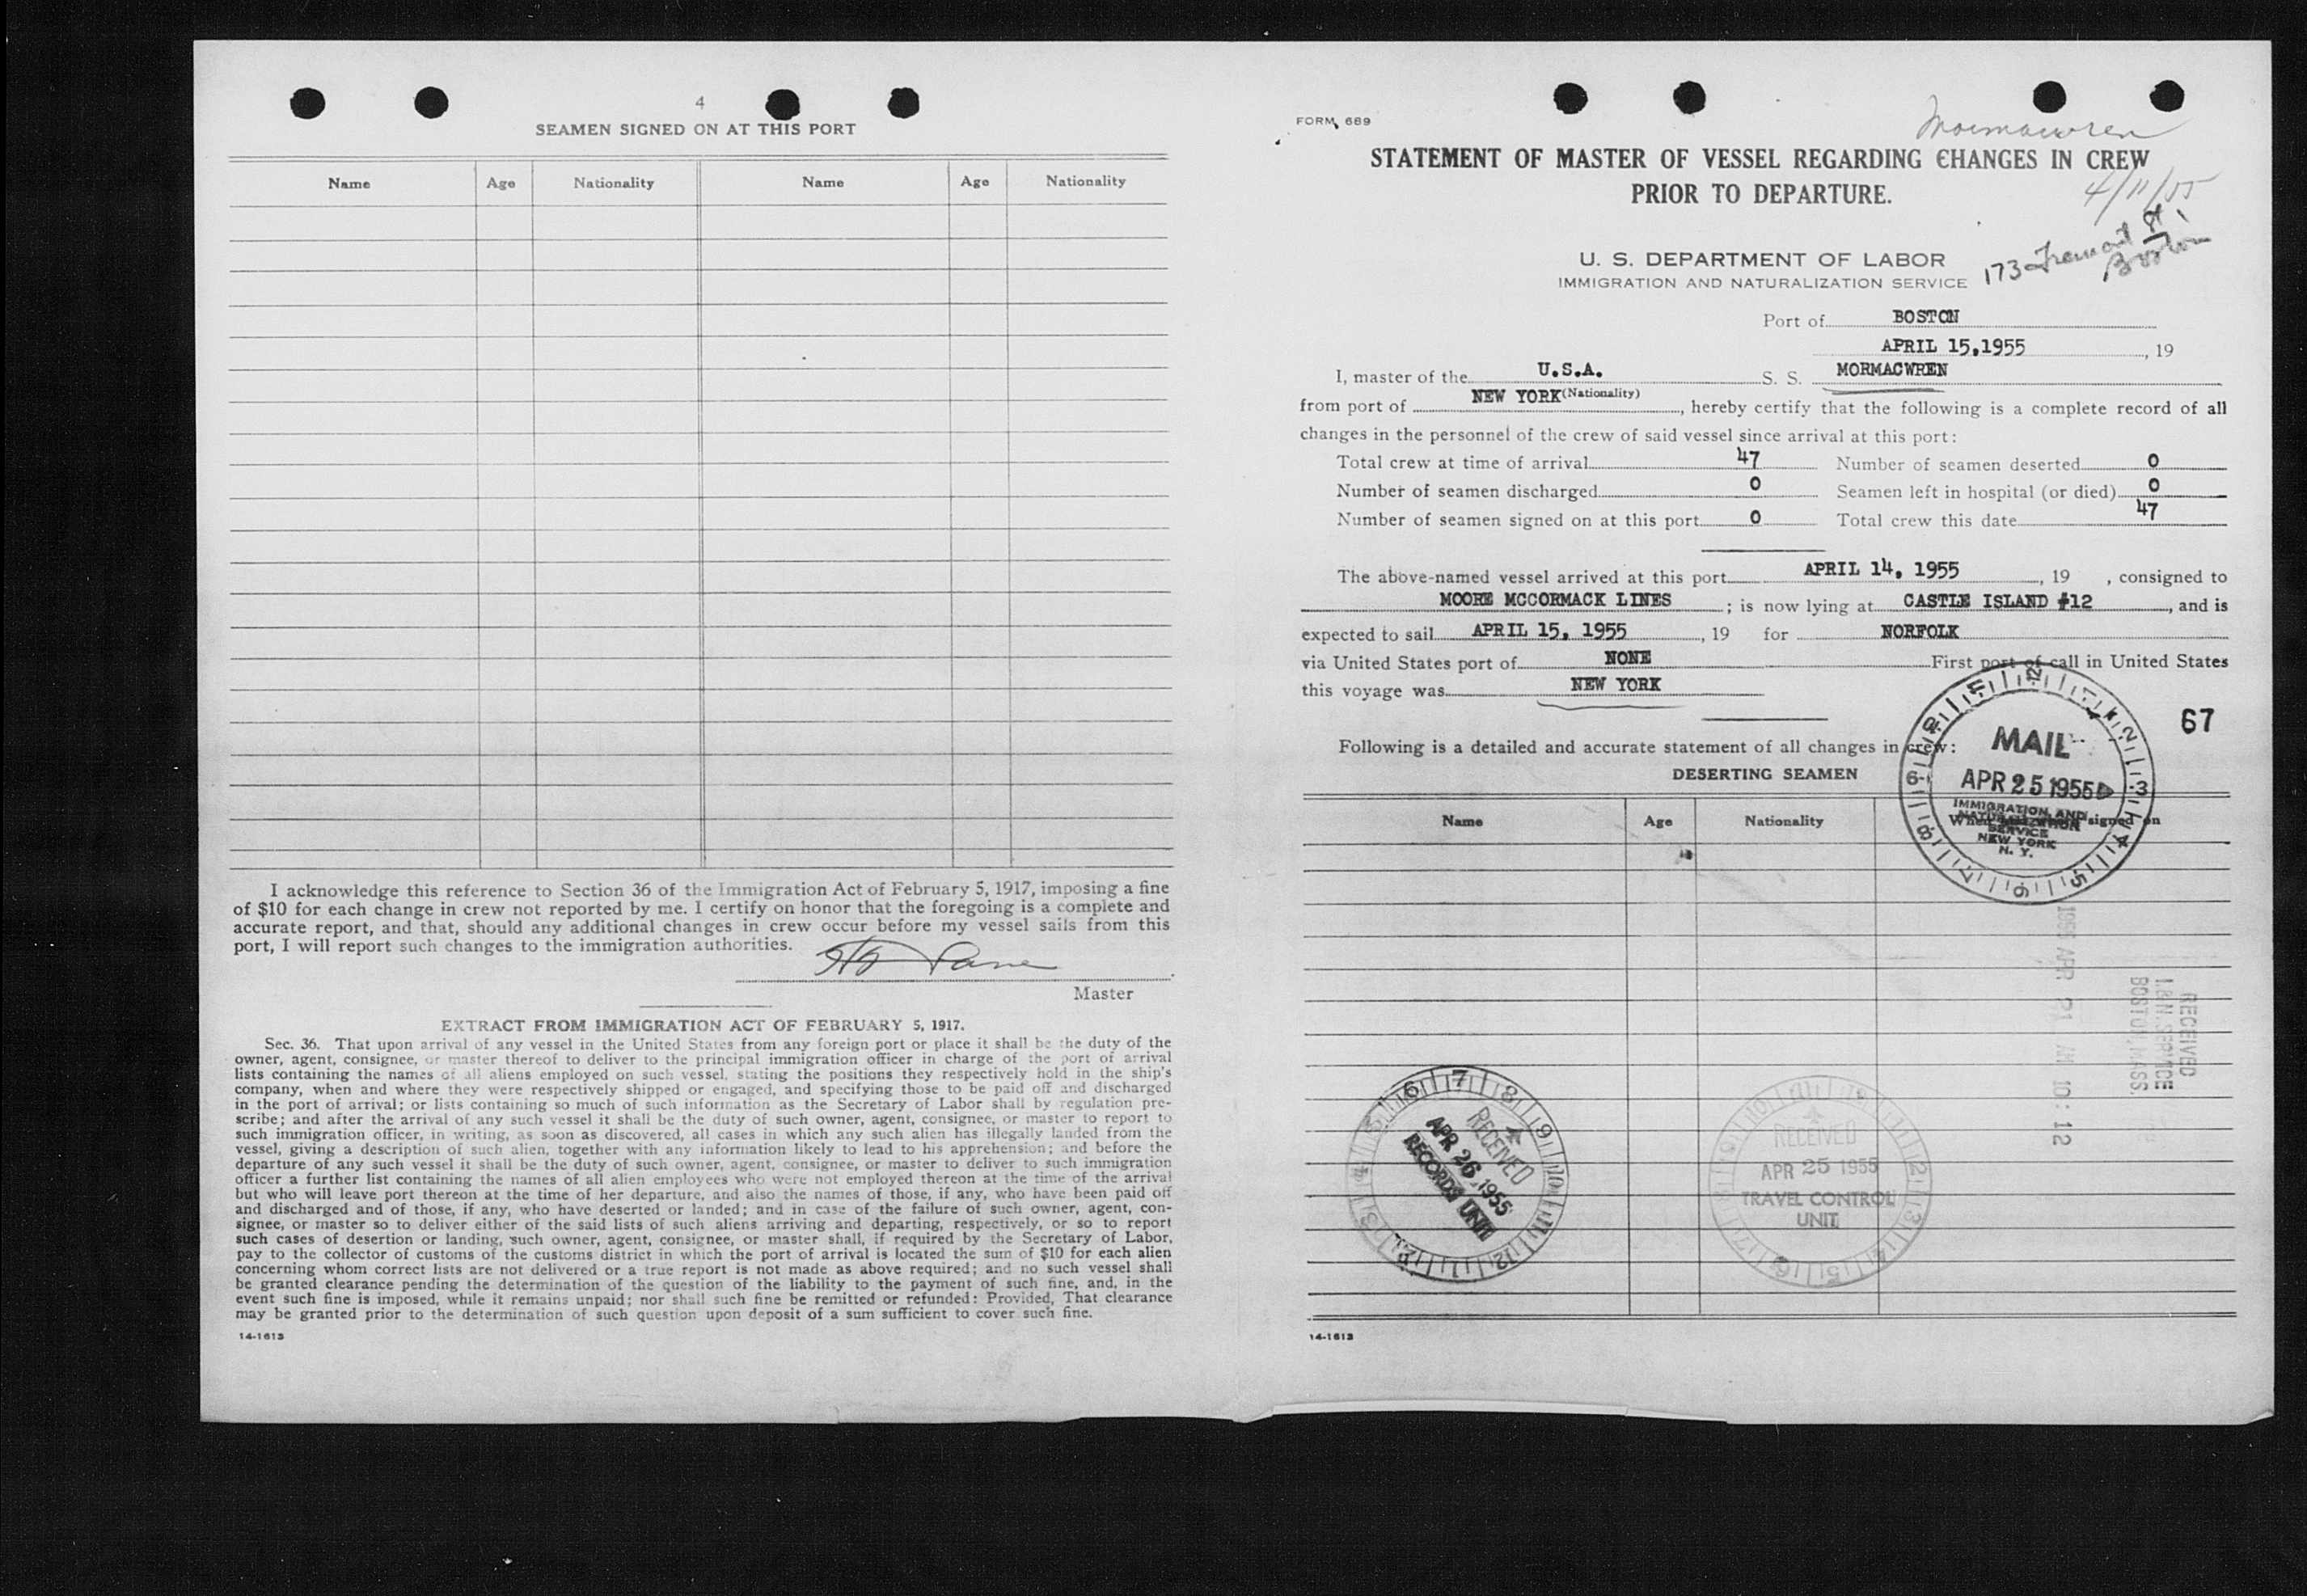 4
SEAMEN SIGNED ON AT THIS PORT
Name Age Nationality Name Age Nationality
I acknowledge this reference to Section 36 of the Immigration Act of February 5, 1917, imposing a fine
of $10 for each change in crew not reported by me. I certify on honor that the foregoing is a complete and
accurate report, and that, should any additional changes in crew occur before my vessel sails from this
port, I will report such changes to the immigration authorities.
Master
EXTRACT FROM IMMIGRATION ACT OF FEBRUARY 5, 1917.
Sec. 36. That upon arrival of any vessel in the United States from any foreign port or place it shall be the duty of the
owner, agent, consignee, or master thereof to deliver to the principal immigration officer in charge of the port of arrival
lists containing the names of all aliens employed on such vessel, stating the positions they respectively hold in the ship's
company, when and where they were respectively shipped or engaged, and specifying those to be paid off and discharged
in the port of arrival; or lists containing so much of such information as the Secretary of Labor shall by regulation pre-
scribe; and after the arrival of any such vessel it shall be the duty of such owner, agent, consignee, or master to report to
such immigration officer, in writing, as soon as discovered, all cases in which any such alien has illegally landed from the
vessel, giving a description of such alien, together with any information likely to lead to his apprehension; and before the
departure of any such vessel it shall be the duty of such owner, agent, consignee, or master to deliver to such immigration
officer a further list containing the names of all alien employees who were not employed thereon at the time of the arrival
but who will leave port thereon at the time of her departure, and also the names of those, if any, who have been paid off
and discharged and of those, if any, who have deserted or landed; and in case of the failure of such owner, agent, con-
signee, or master so to deliver either of the said lists of such aliens arriving and departing, respectively, or so to report
such cases of desertion or landing, such owner, agent, consignee, or master shall, if required by the Secretary of Labor,
pay to the collector of customs of the customs district in which the port of arrival is located the sum of $10 for each alien
concerning whom correct lists are not delivered or a true report is not made as above required; and no such vessel shall
be granted clearance pending the determination of the question of the liability to the payment of such fine, and, in the
event such fine is imposed, while it remains unpaid; nor shall such fine be remitted or refunded: Provided, That clearance
may be granted prior to the determination of such question upon deposit of a sum sufficient to cover such fine.
14-1613
FORM 689
Mormacwren
STATEMENT OF MASTER OF VESSEL REGARDING CHANGES IN CREW
PRIOR TO DEPARTURE.
4/11/55
173 Tremont St
Boston
U. S. DEPARTMENT OF LABOR
IMMIGRATION AND NATURALIZATION SERVICE
Port of BOSTON
APRIL 15,1955, 19
I, master of the U.S.A. S. S. MORMACWREN
(Nationality)
from port of NEW YORK, hereby certify that the following is a complete record of all
changes in the personnel of the crew of said vessel since arrival at this port:
Total crew at time of arrival 47 Number of seamen deserted 0
Number of seamen discharged 0 Seamen left in hospital (or died) 0
Number of seamen signed on at this port 0 Total crew this date 47
The above-named vessel arrived at this port APRIL 14, 1955, 19 , consigned to
MOORE MCCORMACK LINES; is now lying at CASTLE ISLAND #12, and is
expected to sail APRIL 15, 1955, 19 for NORFOLK
via United States port of NONE First port of call in United States
this voyage was NEW YORK
67
Following is a detailed and accurate statement of all changes in crew:
DESERTING SEAMEN
Name Age Nationality When signed on
MAIL
APR 25 1955
IMMIGRATION AND
NATURALIZATION
SERVICE
NEW YORK
N. Y.
RECEIVED
I.&N. SERVICE
BOSTON, MASS.
1955 APR 21 AM 10:12
RECEIVED
APR 26 1955
RECORDS UNIT
RECEIVED
APR 25 1955
TRAVEL CONTROL
UNIT
14-1613